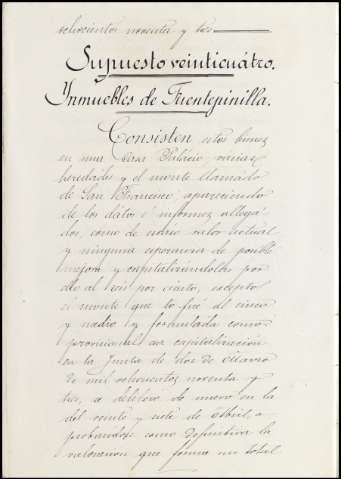 ochocientos noventa y tres
Supuesto veinticuátro.
Ynmuebles de Fuentepinilla.
Consisten estos bienes
en una Casa Palácio, varias
heredades y el monte llamado
de San Francisco; apareciendo
de los dátos é informes allegá-
dos, como de nulo valor actual
y ninguna esperanza de posible
mejora y capitalizándolas por
ello al seis por ciento, excepto
el monte que lo fué al cinco
y medio; y formulada como
provisional esa capitalización
en la Junta de dos de Marzo
de mil ochocientos noventa y
tres, a debatirse de nuevo en la
del veinte y siete de Abril, a-
probándose como definitiva la
valoración que forma un total